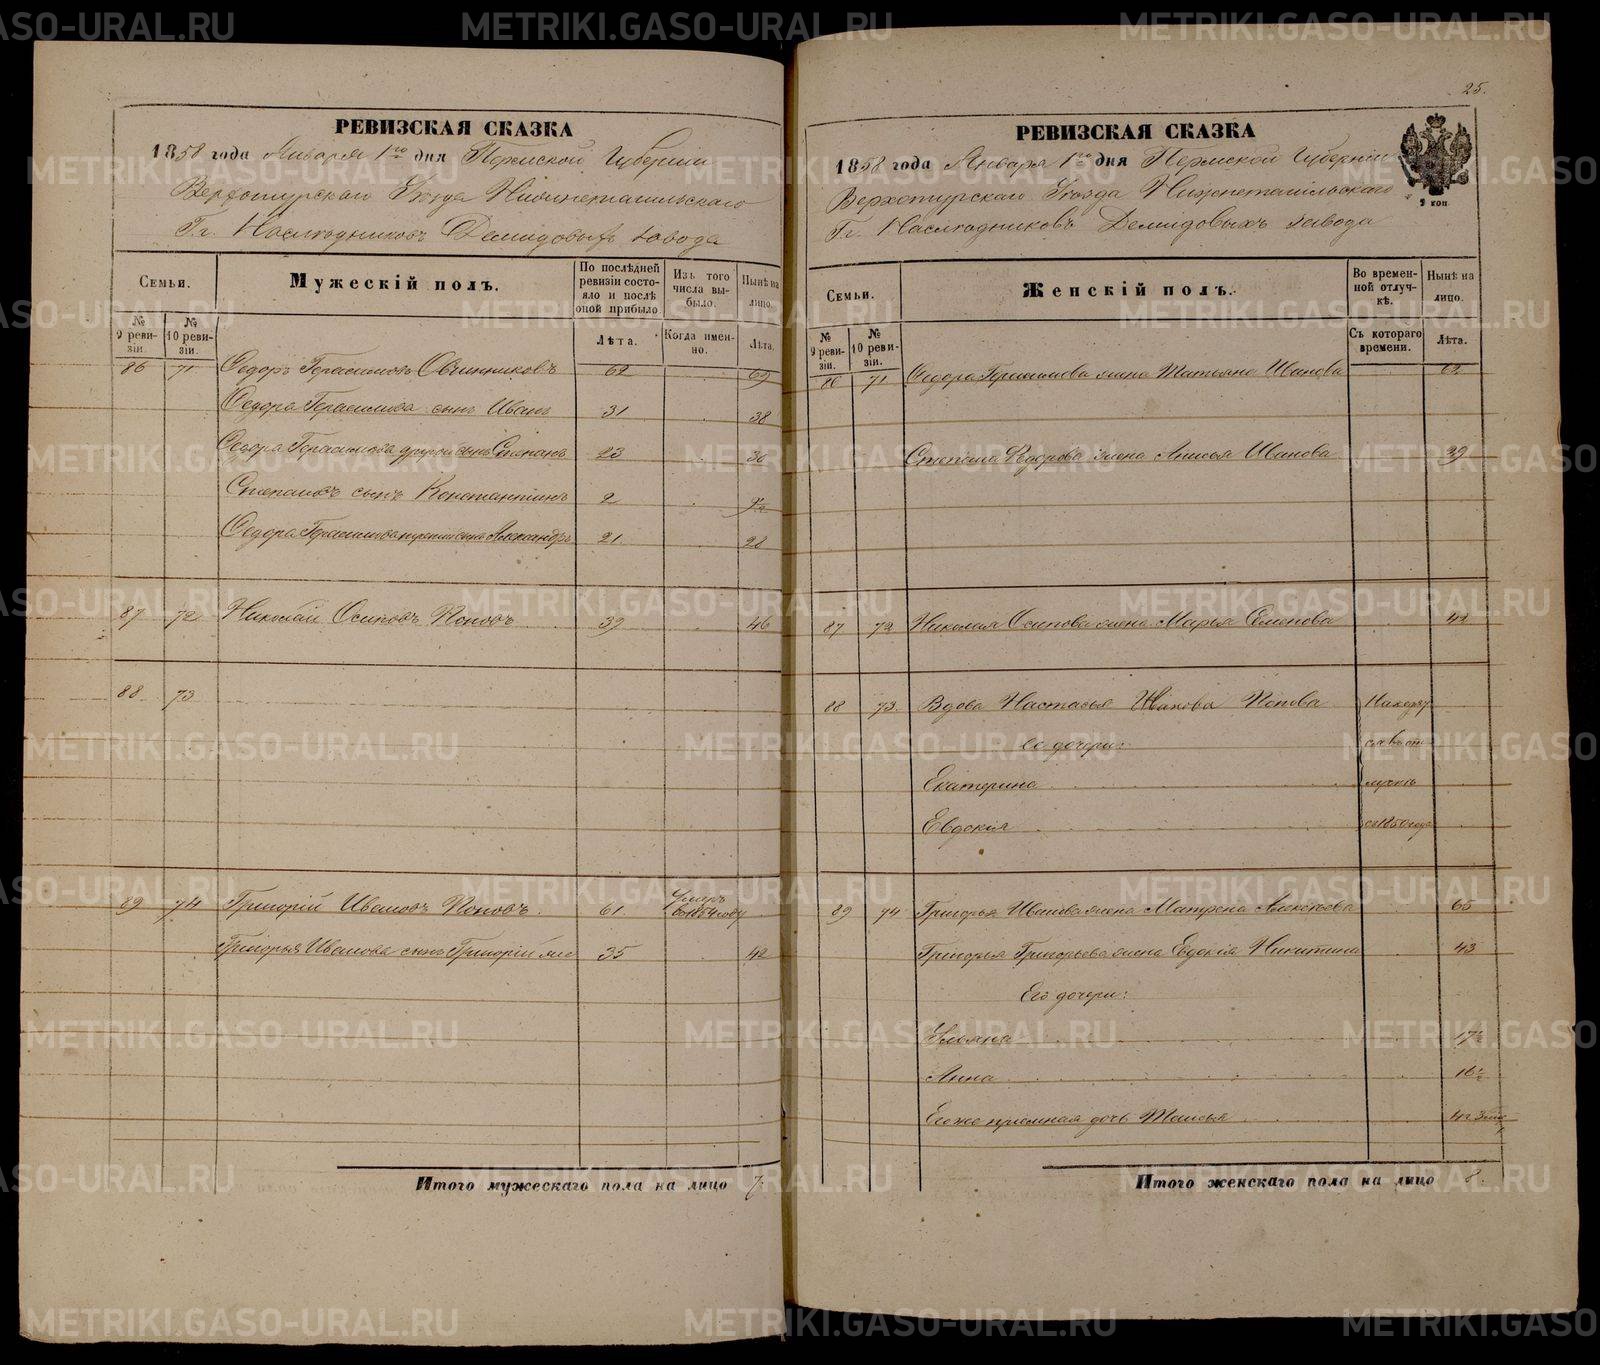 РЕВИЗСКАЯ СКАЗКА
1858 года Января 1го дня Пермской Губерніи
Верхотурскаго Уѣзда Нижнетагильскаго
Гг. Наслѣдниковъ Демидовыхъ завода
Семьи.
Мужескій полъ.
По послѣдней ревизіи состояло и послѣ оной прибыло
Изъ того числа выбыло.
Нынѣ на лицо.
№ 9 ревизіи.
№ 10 ревизіи.
Лѣта.
Когда именно.
Лѣта.
86 71 Федоръ Герасимовъ Овчинниковъ 62 69
Федора Герасимова сынъ Иванъ 31 38
Федора Герасимова другой сынъ Степанъ 23 30
Степановъ сынъ Константинъ 2 9½
Федора Герасимова третій сынъ Александръ 21 28
87 72 Николай Осиповъ Поповъ 39 46
88 73
89 74 Григорій Ивановъ Поповъ 61 Умеръ въ 1854 году
Григорья Иванова сынъ Григорій же 35 42
Итого мужескаго пола на лицо 7.
25.
РЕВИЗСКАЯ СКАЗКА
1858 года Января 1го дня Пермской Губерніи
Верхотурскаго Уѣзда Нижнетагильскаго
Гг. Наслѣдниковъ Демидовыхъ завода
9 коп
Семьи.
Женскій полъ.
Во временной отлучкѣ.
Нынѣ на лицо.
№ 9 ревизіи.
№ 10 ревизіи.
Съ котораго времени.
Лѣта.
86 71 Федора Герасимова жена Татьяна Иванова 62
Степана Федорова жена Анисья Иванова 39
87 72 Николая Осипова жена Марья Семенова 42
88 73. Вдова Настасья Иванова Попова Находят
ее дочери: ся въ от
Екатерина лучкѣ
Евдокія съ 1850 года
89 74 Григорья Иванова жена Матрена Алексѣева 65
Григорья Григорьева жена Евдокія Никитина 43
Его дочери:
Ульяна 17½
Анна 16½
Его же пріемная дочь Таисья
Итого женскаго пола на лицо 8.
METRIKI.GASO-URAL.RU